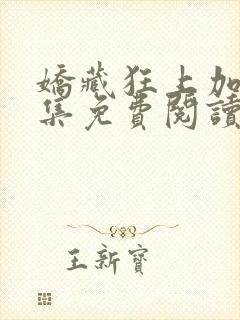 嬌藏狂上加
集免費閱讀
王新寶